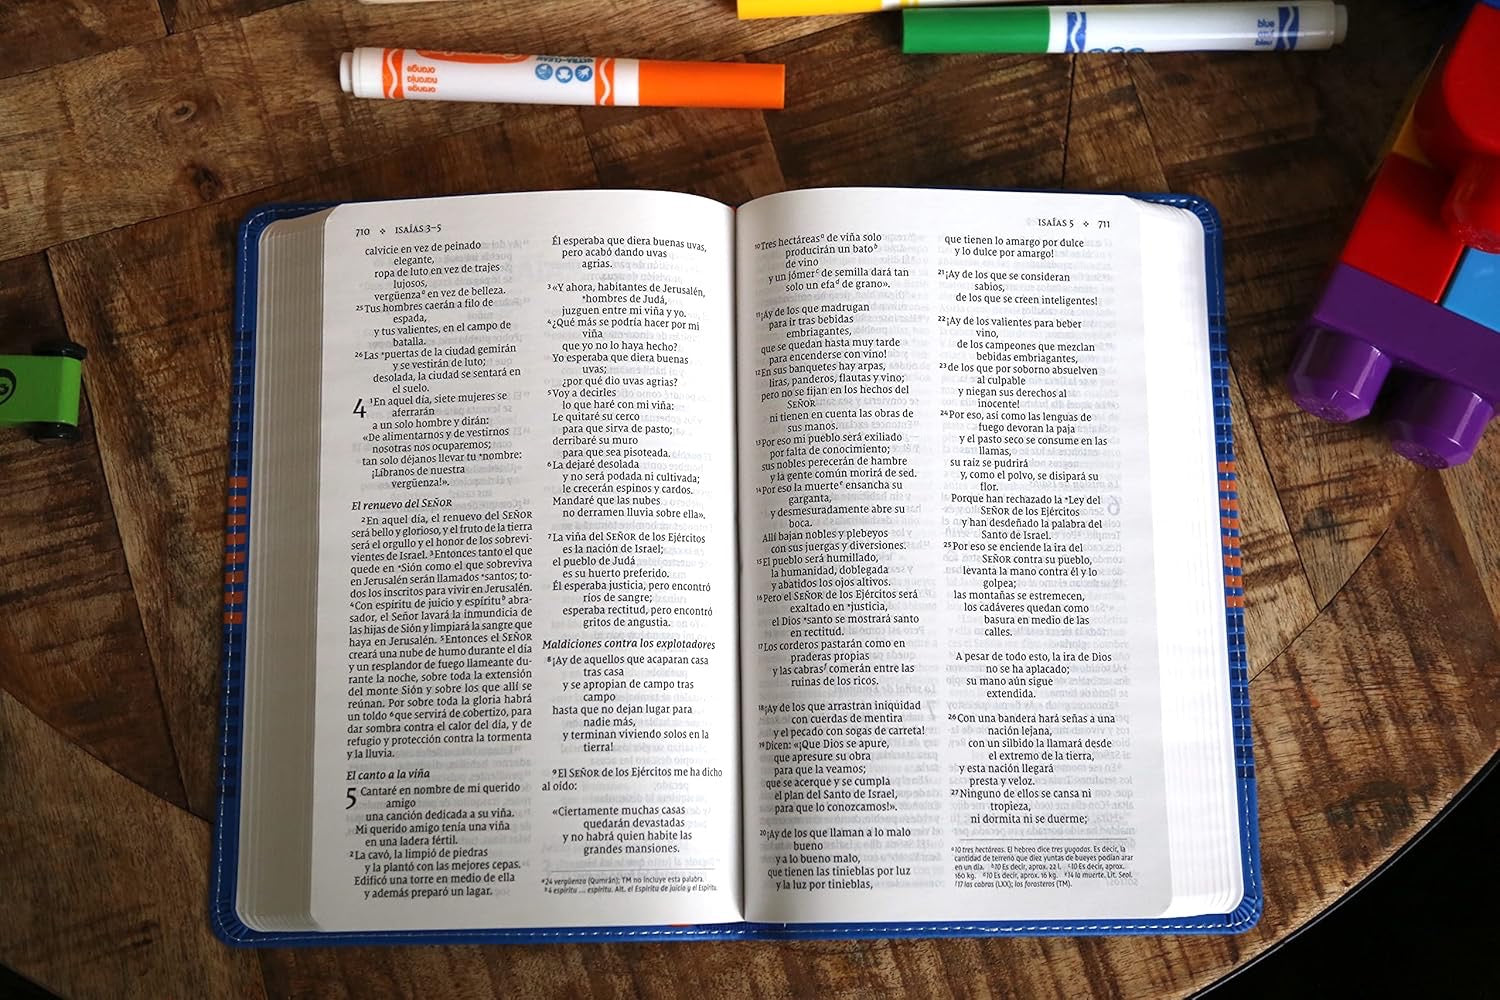 orange
naranja
orange
ULTRA-CLEAN
blue
azul
bleu
710 ❖ ISAÍAS 3–5
calvicie en vez de peinado
elegante,
ropa de luto en vez de trajes
lujosos,
vergüenzaª en vez de belleza.
25 Tus hombres caerán a filo de
espada,
y tus valientes, en el campo de
batalla.
26 Las *puertas de la ciudad gemirán
y se vestirán de luto;
desolada, la ciudad se sentará en
el suelo.
4 1 En aquel día, siete mujeres se
aferrarán
a un solo hombre y dirán:
«De alimentarnos y de vestirnos
nosotras nos ocuparemos;
tan solo déjanos llevar tu *nombre:
¡Líbranos de nuestra
vergüenza!».
El renuevo del SEÑOR
2 En aquel día, el renuevo del SEÑOR
será bello y glorioso, y el fruto de la tierra
será el orgullo y el honor de los sobrevi-
vientes de Israel. 3 Entonces tanto el que
quede en *Sión como el que sobreviva
en Jerusalén serán llamados *santos; to-
dos los inscritos para vivir en Jerusalén.
4 Con espíritu de juicio y espíritu b abra-
sador, el Señor lavará la inmundicia de
las hijas de Sión y limpiará la sangre que
haya en Jerusalén. 5 Entonces el SEÑOR
creará una nube de humo durante el día
y un resplandor de fuego llameante du-
rante la noche, sobre toda la extensión
del monte Sión y sobre los que allí se
reúnan. Por sobre toda la gloria habrá
un toldo 6 que servirá de cobertizo, para
dar sombra contra el calor del día, y de
refugio y protección contra la tormenta
y la lluvia.
El canto a la viña
5 Cantaré en nombre de mi querido
amigo
una canción dedicada a su viña.
Mi querido amigo tenía una viña
en una ladera fértil.
2 La cavó, la limpió de piedras
y la plantó con las mejores cepas.
Edificó una torre en medio de ella
y además preparó un lagar.
Él esperaba que diera buenas uvas,
pero acabó dando uvas
agrias.
3 «Y ahora, habitantes de Jerusalén,
*hombres de Judá,
juzguen entre mi viña y yo.
4 ¿Qué más se podría hacer por mi
viña
que yo no lo haya hecho?
Yo esperaba que diera buenas
uvas;
¿por qué dio uvas agrias?
5 Voy a decirles
lo que haré con mi viña:
Le quitaré su cerco
para que sirva de pasto;
derribaré su muro
para que sea pisoteada.
6 La dejaré desolada
y no será podada ni cultivada;
le crecerán espinos y cardos.
Mandaré que las nubes
no derramen lluvia sobre ella».
7 La viña del SEÑOR de los Ejércitos
es la nación de Israel;
el pueblo de Judá
es su huerto preferido.
Él esperaba justicia, pero encontró
ríos de sangre;
esperaba rectitud, pero encontró
gritos de angustia.
Maldiciones contra los explotadores
8 ¡Ay de aquellos que acaparan casa
tras casa
y se apropian de campo tras
campo
hasta que no dejan lugar para
nadie más,
y terminan viviendo solos en la
tierra!
9 El SEÑOR de los Ejércitos me ha dicho
al oído:
«Ciertamente muchas casas
quedarán devastadas
y no habrá quien habite las
grandes mansiones.
a 24 vergüenza (Qumrán); TM no incluye esta palabra.
b 4 espíritu ... espíritu. Alt. el Espíritu de juicio y el Espíritu.
ISAÍAS 5 ❖ 711
10 Tres hectáreas a de viña solo
producirán un bato b
de vino
y un jómer c de semilla dará tan
solo un efa d de grano».
11 ¡Ay de los que madrugan
para ir tras bebidas
embriagantes,
que se quedan hasta muy tarde
para encenderse con vino!
12 En sus banquetes hay arpas,
liras, panderos, flautas y vino;
pero no se fijan en los hechos del
SEÑOR
ni tienen en cuenta las obras de
sus manos.
13 Por eso mi pueblo será exiliado
por falta de conocimiento;
sus nobles perecerán de hambre
y la gente común morirá de sed.
14 Por eso la muerte e ensancha su
garganta,
y desmesuradamente abre su
boca.
Allí bajan nobles y plebeyos
con sus juergas y diversiones.
15 El pueblo será humillado,
la humanidad, doblegada
y abatidos los ojos altivos.
16 Pero el SEÑOR de los Ejércitos será
exaltado en *justicia,
el Dios *santo se mostrará santo
en rectitud.
17 Los corderos pastarán como en
praderas propias
y las cabras f comerán entre las
ruinas de los ricos.
18 ¡Ay de los que arrastran iniquidad
con cuerdas de mentira
y el pecado con sogas de carreta!
19 Dicen: «¡Que Dios se apure,
que apresure su obra
para que la veamos;
que se acerque y se cumpla
el plan del Santo de Israel,
para que lo conozcamos!».
20 ¡Ay de los que llaman a lo malo
bueno
y a lo bueno malo,
que tienen las tinieblas por luz
y la luz por tinieblas,
que tienen lo amargo por dulce
y lo dulce por amargo!
21 ¡Ay de los que se consideran
sabios,
de los que se creen inteligentes!
22 ¡Ay de los valientes para beber
vino,
de los campeones que mezclan
bebidas embriagantes,
23 de los que por soborno absuelven
al culpable
y niegan sus derechos al
inocente!
24 Por eso, así como las lenguas de
fuego devoran la paja
y el pasto seco se consume en las
llamas,
su raíz se pudrirá
y, como el polvo, se disipará su
flor.
Porque han rechazado la *Ley del
SEÑOR de los Ejércitos
y han desdeñado la palabra del
Santo de Israel.
25 Por eso se enciende la ira del
SEÑOR contra su pueblo,
levanta la mano contra él y lo
golpea;
las montañas se estremecen,
los cadáveres quedan como
basura en medio de las
calles.
A pesar de todo esto, la ira de Dios
no se ha aplacado;
su mano aún sigue
extendida.
26 Con una bandera hará señas a una
nación lejana,
con un silbido la llamará desde
el extremo de la tierra,
y esta nación llegará
presta y veloz.
27 Ninguno de ellos se cansa ni
tropieza,
ni dormita ni se duerme;
a 10 tres hectáreas. El hebreo dice tres yugadas. Es decir, la
cantidad de terreno que diez yuntas de bueyes podían arar
en un día. b 10 Es decir, aprox. 22 l. c 10 Es decir, aprox.
160 kg. d 10 Es decir, aprox. 16 kg. e 14 la muerte. Lit. Seol.
f 17 las cabras (LXX); los forasteros (TM).